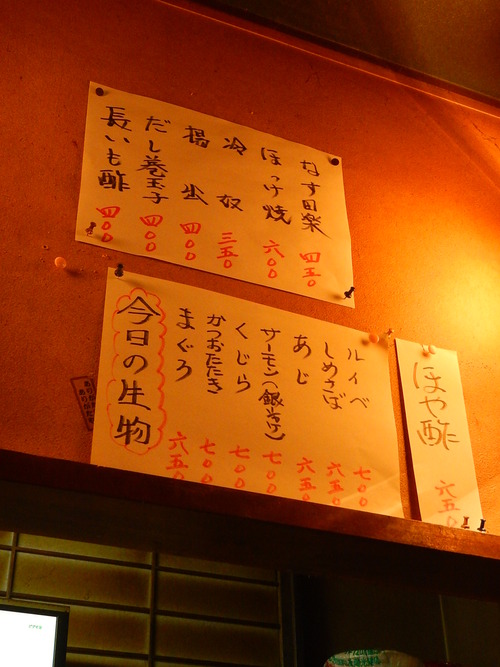 なす田楽 四五〇
ほっけ焼 六〇〇
冷奴 三五〇
揚出 四〇〇
だし巻玉子 四〇〇
長いも酢 四〇〇
ほや酢 六五〇
ルイベ 七〇〇
しめさば 六五〇
あじ 六五〇
サーモン(銀ざけ) 七〇〇
くじら 七〇〇
かつおたたき 七〇〇
まぐろ 六五〇
今日の生物